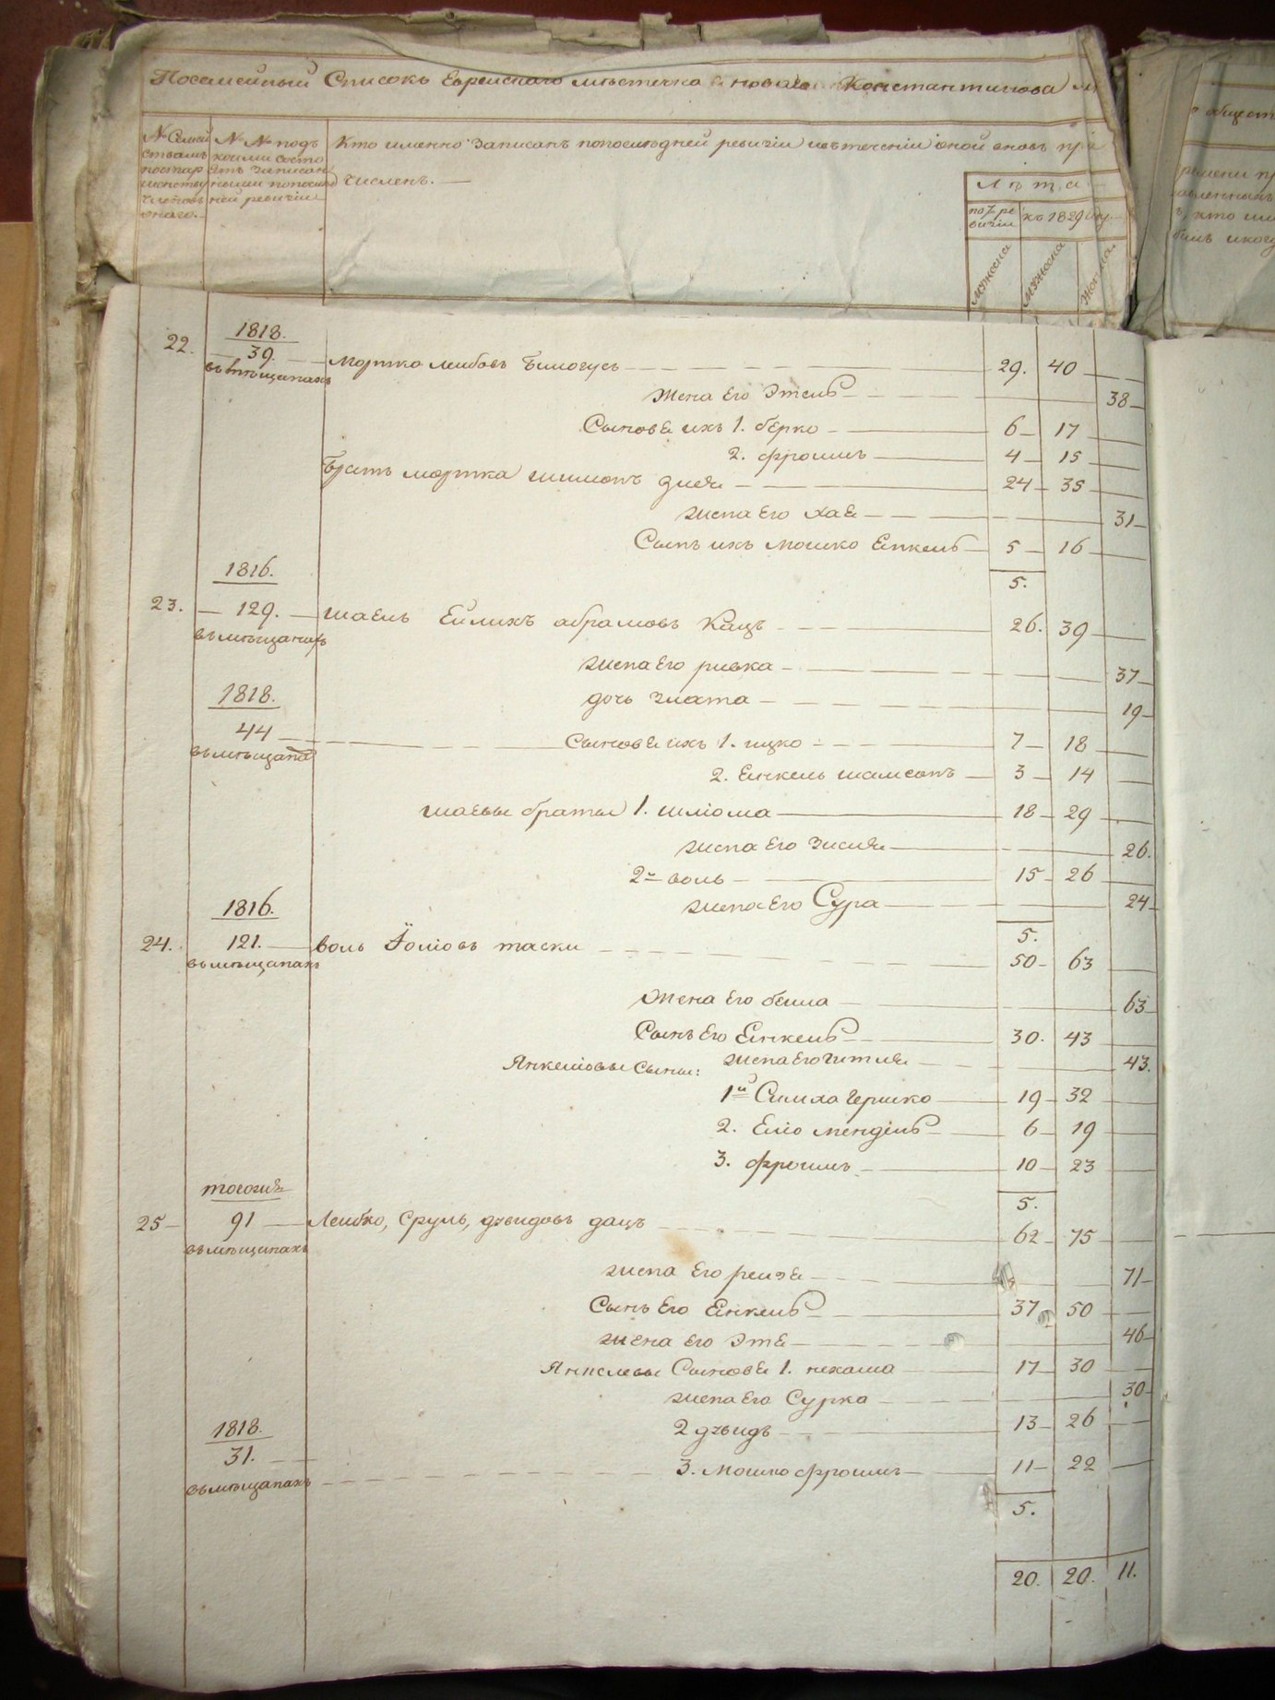 Посемейный Списокъ Еврейскаго мѣстечка новаго Константинова
№ Семей
№ № подъ
коими состо
ятъ записан
ными попослѣд
ней ревизіи
Кто именно Записанъ попослѣдней ревизіи ивътеченіи оной вновь при
численъ.
Лѣта
по 7 ре
визіи
къ 1829 году
мужеска
мужеска
женска
22.
1818.
39.
въмѣщанахъ
Мортко лейбовъ Билогусъ 29. 40
Жена Его Этель 38
Сыновя ихъ 1. берко 6 17
2. фроимъ 4 15
Братъ мортка шимонъ зися 24 35
жена Его хая 31
Сынъ ихъ мошко Янкель 5 16
5.
1816.
23. 129.
въмѣщанахъ
шаель Ейлихъ абрамовъ Кацъ 26. 39
жена Его ривка 37
дочь злата 19
1818.
44
въмѣщанах
Сыновя ихъ 1. ицко 7 18
2. Янкель шамсонъ 3 14
шаевы братья 1. шліома 18 29
жена Его Зися 26.
2й воль 15 26
жена Его Сура 24
5.
1816.
24. 121.
въмѣщанахъ
воль Іоліовъ таски 50 63
Жена Его бейла 63
Сынъ Его Янкель 30. 43
жена Его гитля 43.
Янкеліовы Сыны:
1й Симха гершко 19 32
2. Еліо менділь 6 19
3. фроимъ 10 23
5.
тогожъ
25 91
въмѣщанахъ
Лейбко, Сруль, давидовъ дацъ 62 75
жена Его рейзя 71
Сынъ Его Янкель 37 50
жена Его Этя 46
Янкелевы Сыновя 1. нехама 17 30
жена Его Сурка 30
2 давидъ 13 26
1818.
31.
въмѣщанахъ
3. Мошко фроимъ 11 22
5.
20. 20. 11.